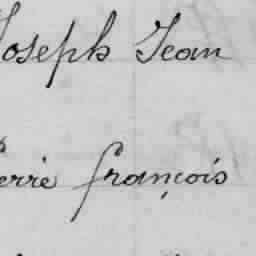 Joseph Jean
Pierre françois